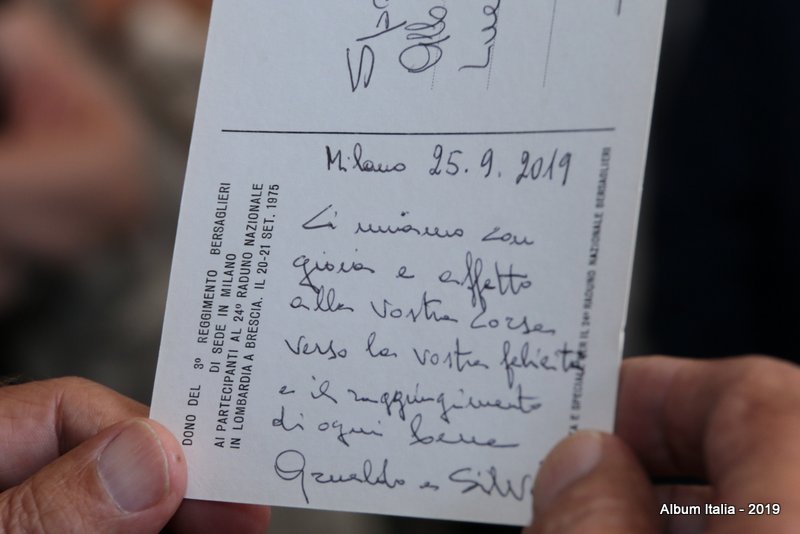 Milano 25.9.2019
Ci uniamo con
gioia e affetto
alla vostra corsa
verso la vostra felicità
e il raggiungimento
di ogni bene
DONO DEL 3º REGGIMENTO BERSAGLIERI
DI SEDE IN MILANO
AI PARTECIPANTI AL 24º RADUNO NAZIONALE
IN LOMBARDIA A BRESCIA. IL 20-21 SET. 1975
PER IL 24º RADUNO NAZIONALE BERSAGLIERI
Album Italia - 2019